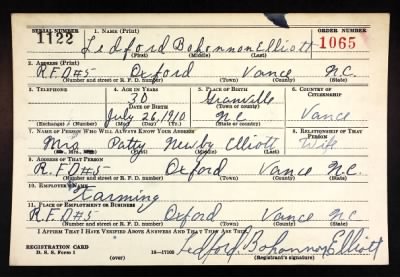 SERIAL NUMBER 1. NAME (Print) ORDER NUMBER
1122 Ledford Bohannon Elliott 1065
(First) (Middle) (Last)
2. ADDRESS (Print)
R.F.D#5 Oxford Vance N.C.
(Number and street or R. F. D. number) (Town) (County) (State)
3. TELEPHONE 4. AGE IN YEARS 5. PLACE OF BIRTH 6. COUNTRY OF CITIZENSHIP
30 Granville
DATE OF BIRTH (Town or county)
July 26, 1910 N.C. Vance
(Exchange) (Number) (Mo.) (Day) (Yr.) (State or country)
7. NAME OF PERSON WHO WILL ALWAYS KNOW YOUR ADDRESS 8. RELATIONSHIP OF THAT PERSON
Mrs Patty Newby Elliott Wife
(Mr., Mrs., Miss) (First) (Middle) (Last)
9. ADDRESS OF THAT PERSON
R.F.D#5 Oxford Vance N.C.
(Number and street or R. F. D. number) (Town) (County) (State)
10. EMPLOYER'S NAME
Farming
11. PLACE OF EMPLOYMENT OR BUSINESS
R.F.D#5 Oxford Vance N.C.
(Number and street or R. F. D. number) (Town) (County) (State)
I AFFIRM THAT I HAVE VERIFIED ABOVE ANSWERS AND THAT THEY ARE TRUE.
REGISTRATION CARD Ledford Bohannon Elliott
D. S. S. Form 1 (over) 16—17105 (Registrant's signature)